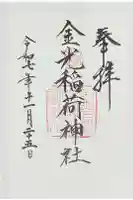 奉拝
金光稲荷神社
令和七年十一月二十五日